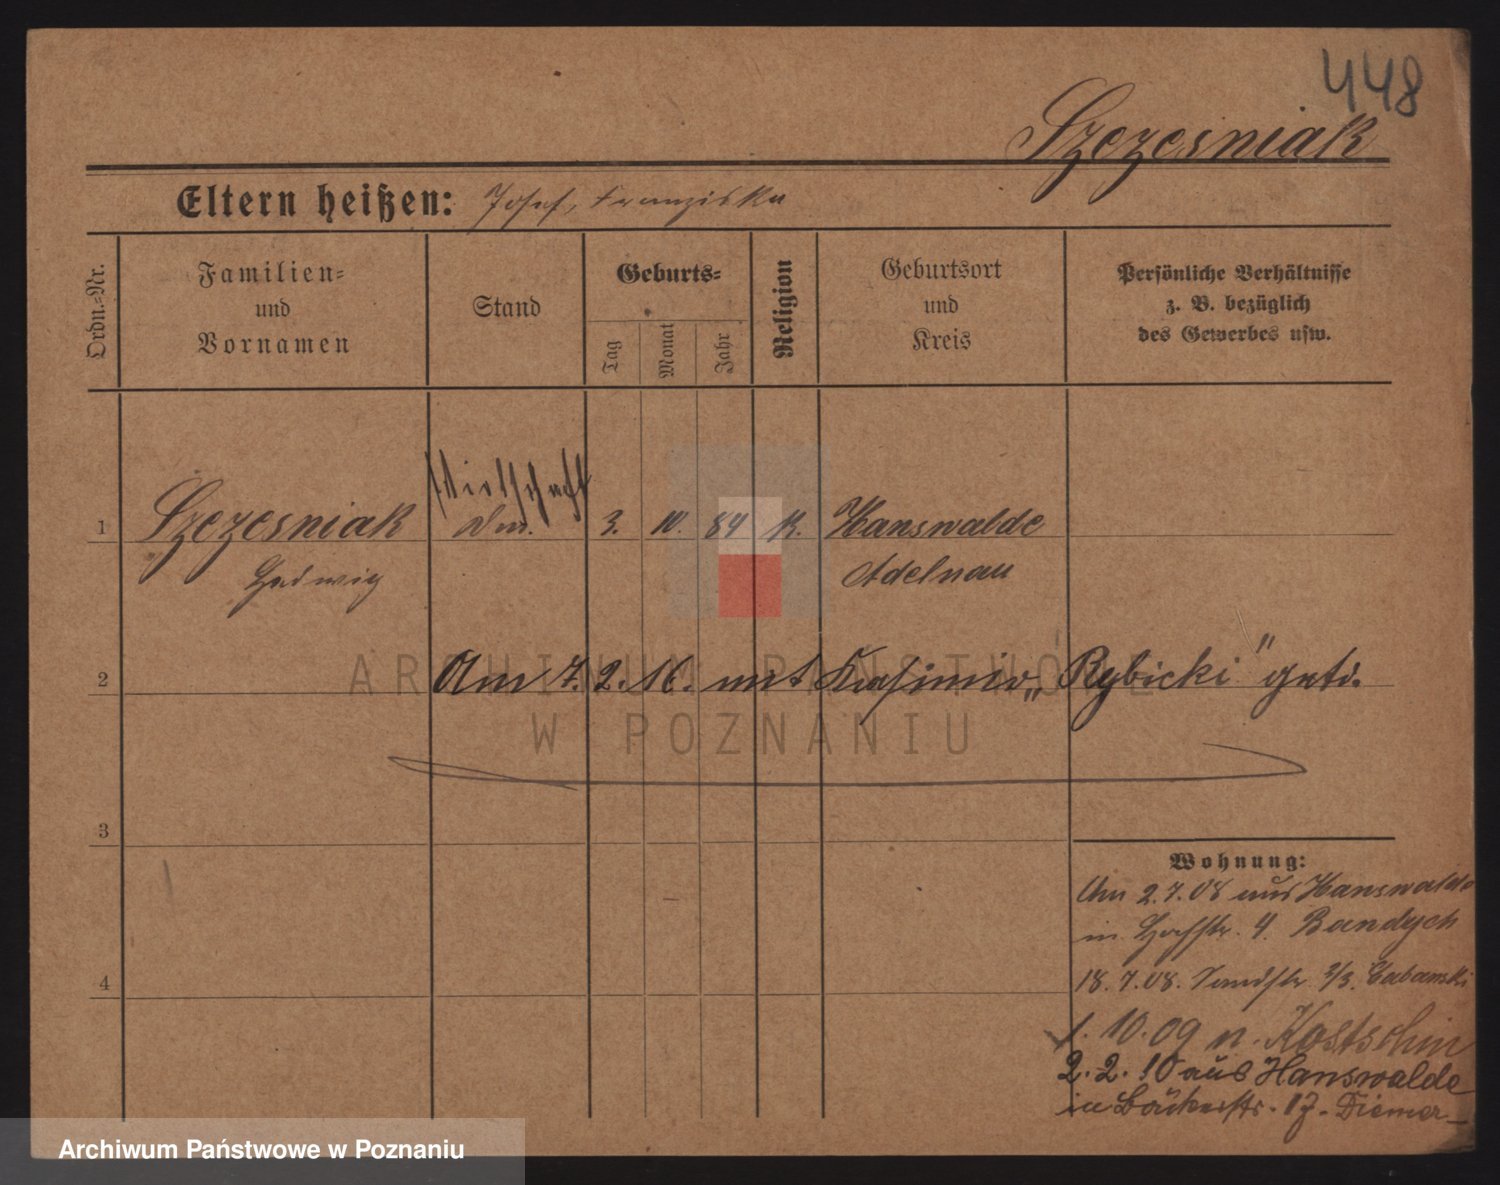 448
Szczesniak
Eltern heißen: Josef, Franziska
Ordn.-Nr.
Familien-
und
Vornamen
Stand
Geburts-
Tag
Monat
Jahr
Religion
Geburtsort
und
Kreis
Persönliche Verhältnisse
z. B. bezüglich
des Gewerbes usw.
Wirtschaft
1 Szczesniak 3. 10. 84 K. Hanswalde
Hedwig Adelnau
2 Am 7. 2. 16. mit Kasimir „Rybicki" getr.
3
Wohnung:
Am 2.7.08 aus Hanswalde
in Hofstr. 4. Bandych
4
18.7.08. Sandstr. 2/3. Cabanski
1. 10. 09 n. Kostschin
2. 2. 10 aus Hanswalde
in Bäckerstr. 17. Diemer
ARCHIWUM PAŃSTWOWE
W POZNANIU
Archiwum Państwowe w Poznaniu